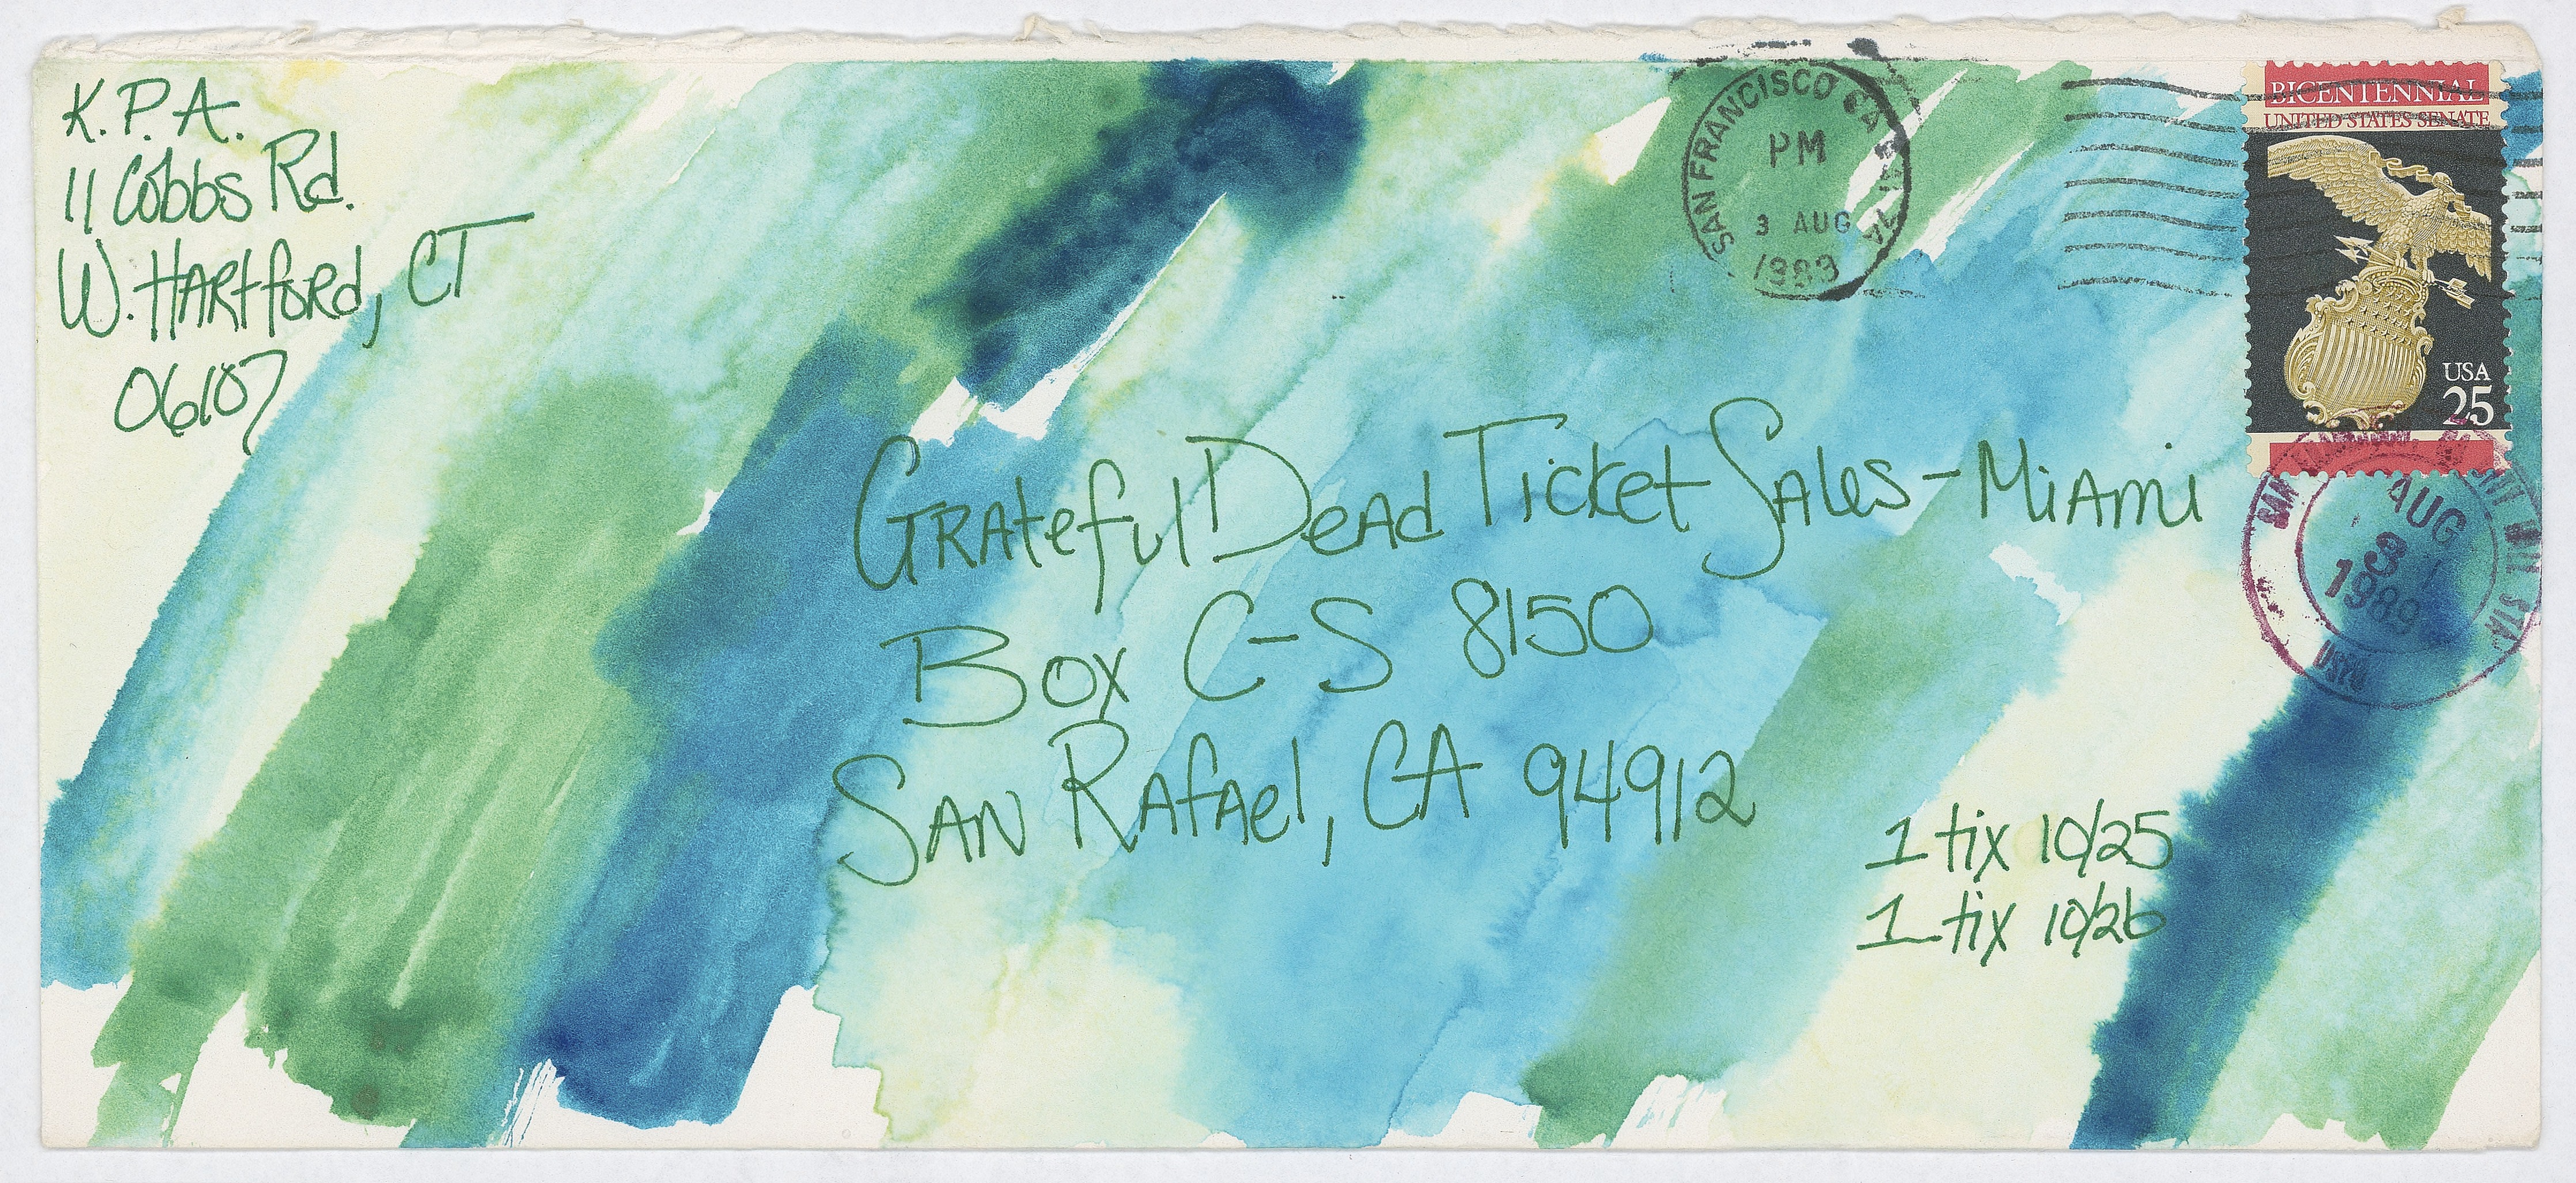 K.P.A.
11 Cobbs Rd.
W. Hartford, CT
06107
SAN FRANCISCO CA
PM
3 AUG
1989
BICENTENNIAL
UNITED STATES SENATE
USA
25
AUG
3
1989
USPO
Grateful Dead Ticket Sales - Miami
Box C-S 8150
San Rafael, CA 94912
1 tix 10/25
1 tix 10/26